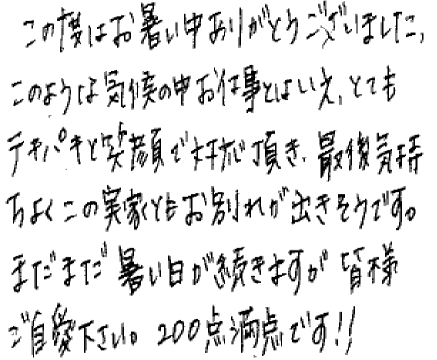 この度はお暑い中ありがとうございました。
このような気候の中お仕事とはいえ、とても
テキパキと笑顔で対応頂き、最後気持
ちよくこの実家ともお別れが出きそうです。
まだまだ暑い日が続きますが皆様
ご自愛下さい。200点満点です!!